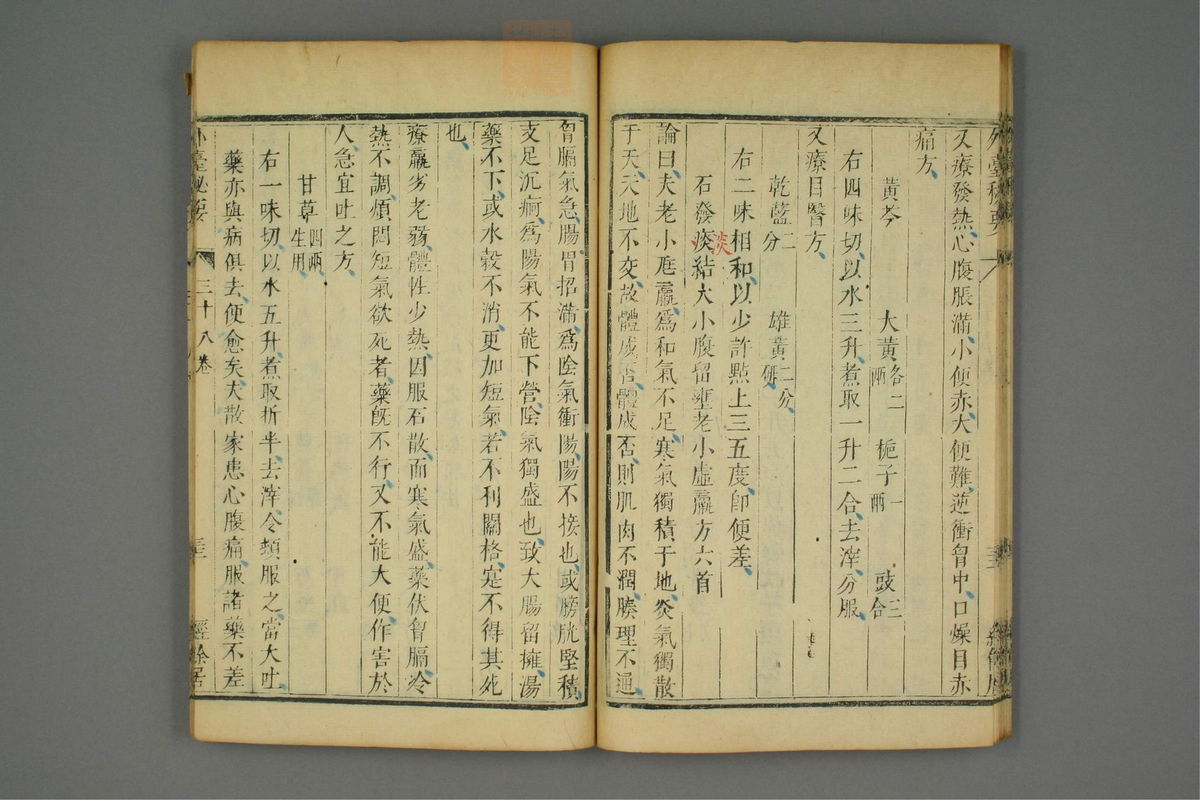 外臺秘要
又療發熱心腹脹滿小便赤大便難逆衝胷中口燥目赤
痛方
黃芩 大黃各二兩 梔子一兩 豉三合
右四味切以水三升煮取一升二合去滓分服
又療目瞖方
乾藍二分 雄黃二分研
右二味相和以少許㸃上三五度卽便差
石發痰結大小腹留壅老小虛羸方六首
淡
論曰夫老小尫羸爲和氣不足寒氣獨積于地炎氣獨散
于天天地不交故體成否體成否則肌肉不潤腠理不通
胷膈氣急腸胃招滿爲陰氣衝陽陽不接也或膀胱堅積
支足沉痾爲陽氣不能下營陰氣獨盛也致大腸留擁湯
藥不下或水穀不消更加短氣若不利關格寔不得其死
也
療羸劣老弱體性少熱因服石散而寒氣盛藥伏胷膈冷
熱不調煩悶短氣欲死者藥旣不行又不能大便作害於
人急宜吐之方
甘草四兩生用
右一味切以水五升煮取折半去滓令頓服之當大吐
藥亦與病俱去便愈矣夫散家患心腹痛服諸藥不差
外臺秘要 三十八卷 經餘居